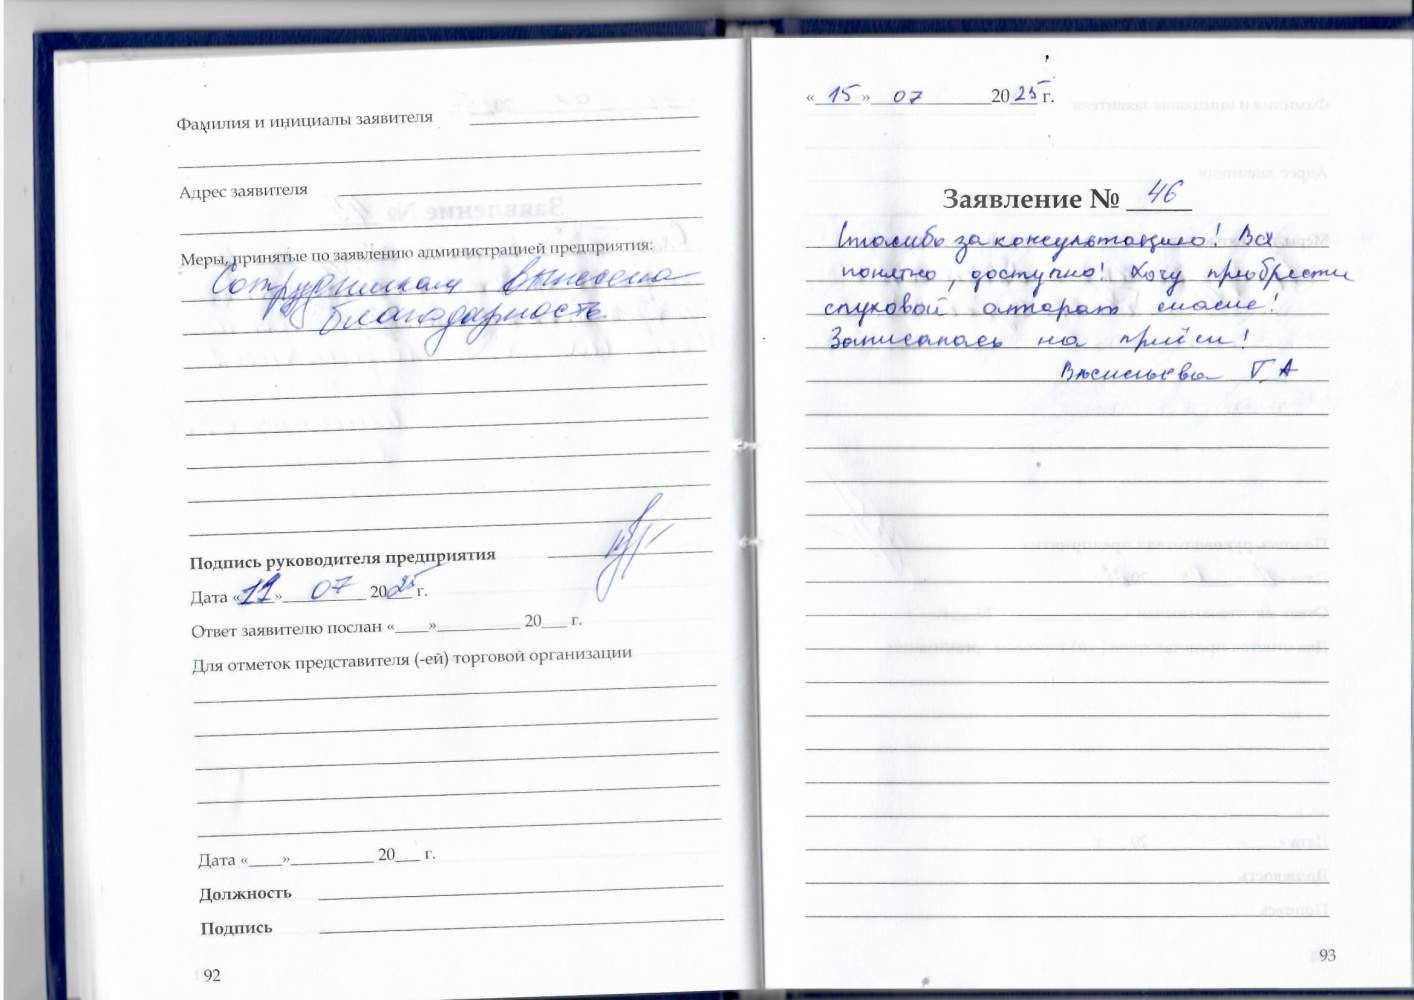 Фамилия и инициалы заявителя
Адрес заявителя
Меры, принятые по заявлению администрацией предприятия:
Сотрудникам вынесена
благодарность
Подпись руководителя предприятия
Дата «11» 07 2025 г.
Ответ заявителю послан «____»__________ 20___ г.
Для отметок представителя (-ей) торговой организации
Дата «____»__________ 20___ г.
Должность
Подпись
92
«15» 07 2025 г.
Заявление № 46
Спасибо за консультацию! Всё
понятно, доступно! Хочу приобрести
слуховой аппарат
Записалась на приём!
Васильева Т.А
93